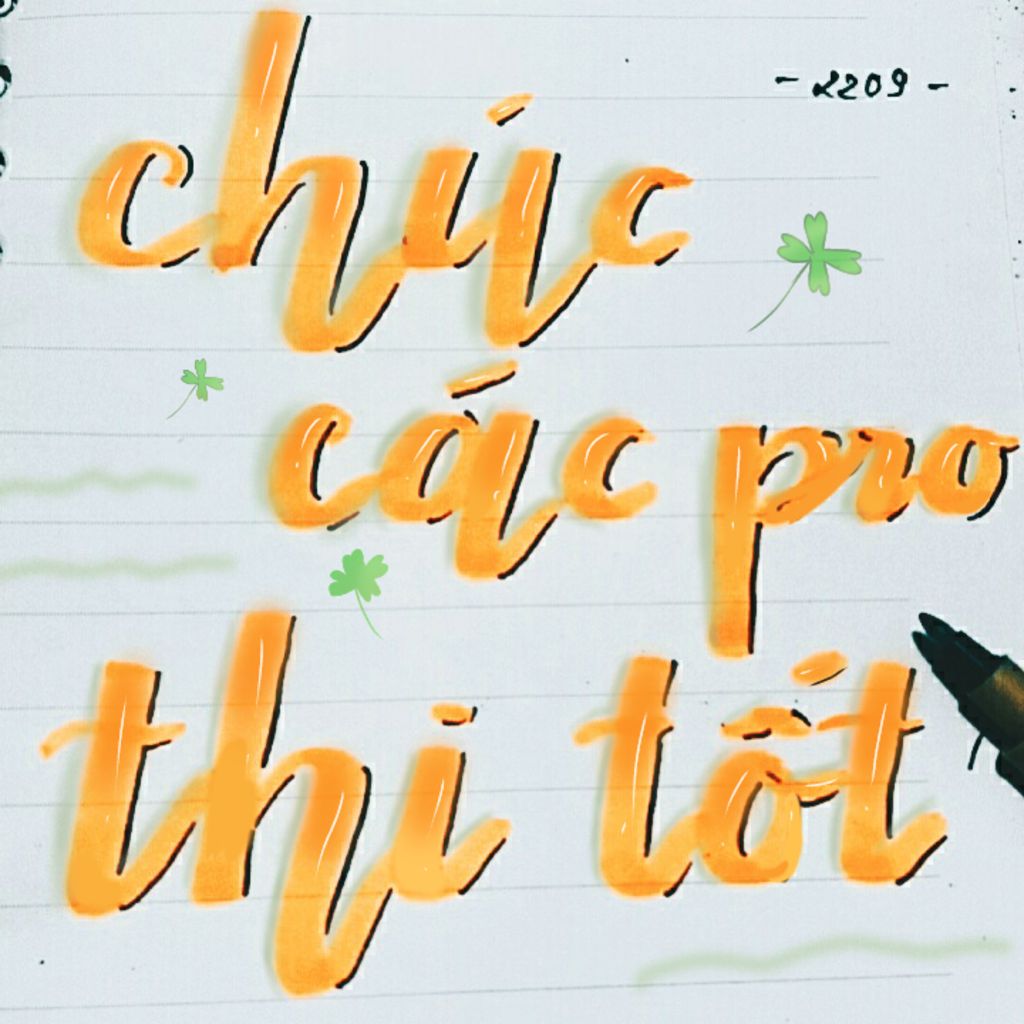 - 2209 -
chúc
các pro
thi tốt